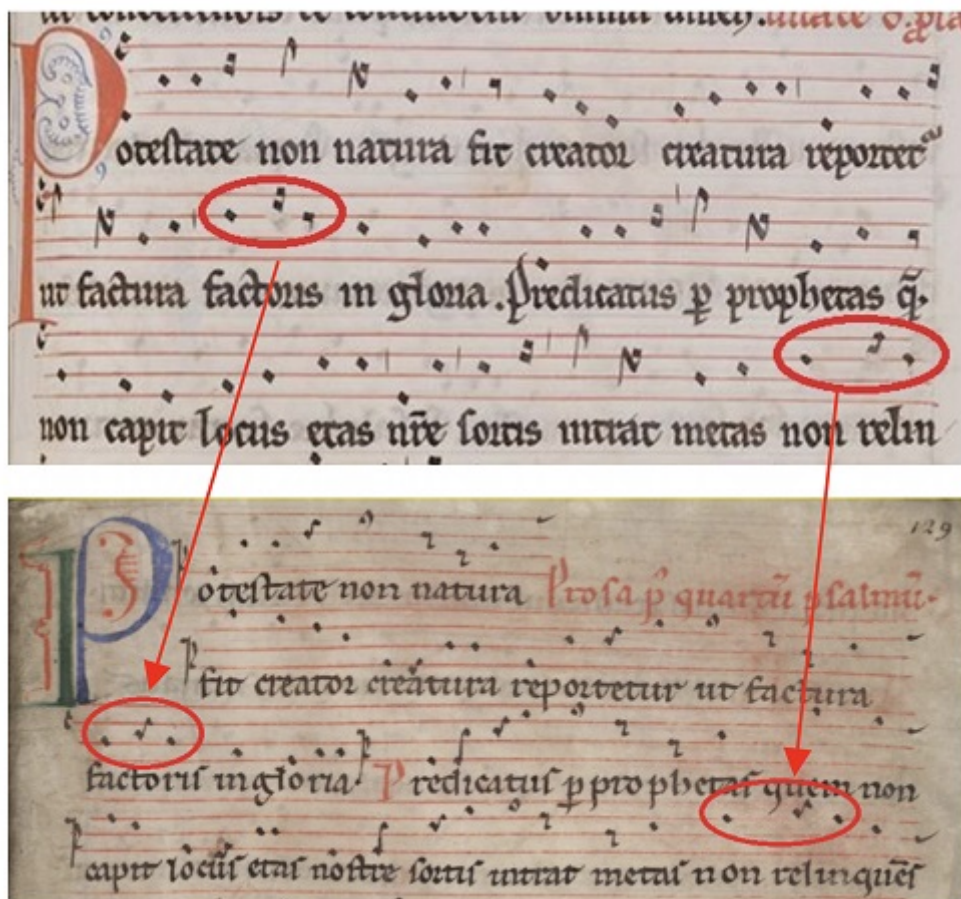 Potestate non natura fit creator creatura reportet
ut factura factoris in gloria. Predicatus ꝑ prophetas q̃
non capit locus etas nr̃e sortis intrat metas non relin
129
Potestate non natura Prosa p̃ quartũ psalmũ.
fit creator creatura reportetur ut factura
factoris in gloria. Predicatus ꝑ prophetas quem non
capit locus etas nostre sortis intrat metas non relinquẽs